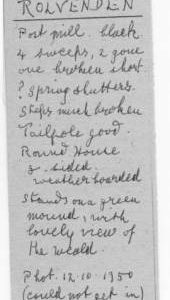 ROLVENDEN
Post mill. black.
4 sweeps, 2 gone
one broken short
? Spring shutters.
Steps much broken
Tailpole good.
Round House
8 sided.
weatherboarded
Stands on a green
mound, with
lovely view of
the weald.
Phot. 12.10.1950
(could not get in)